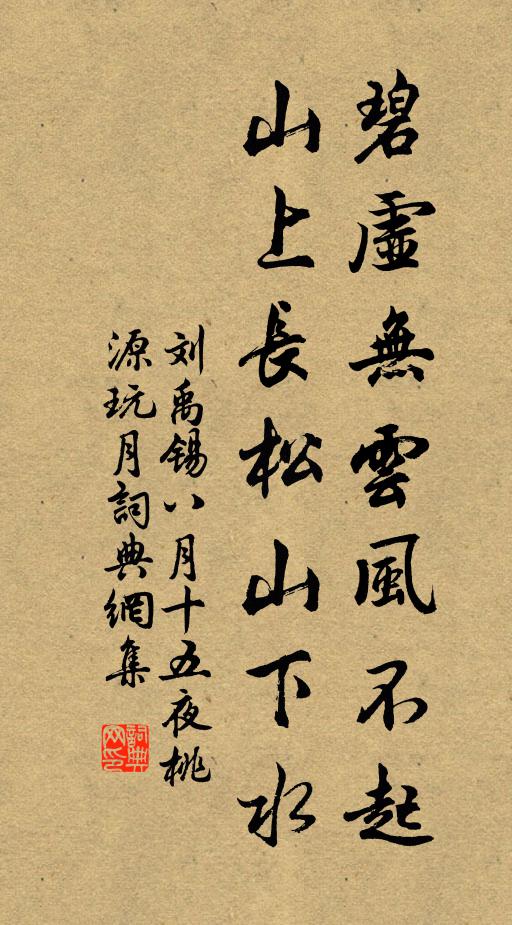 碧虛無雲風不起
山上長松山下水
刘禹锡八月十五夜桃
源玩月詞典網集
詞典
网印